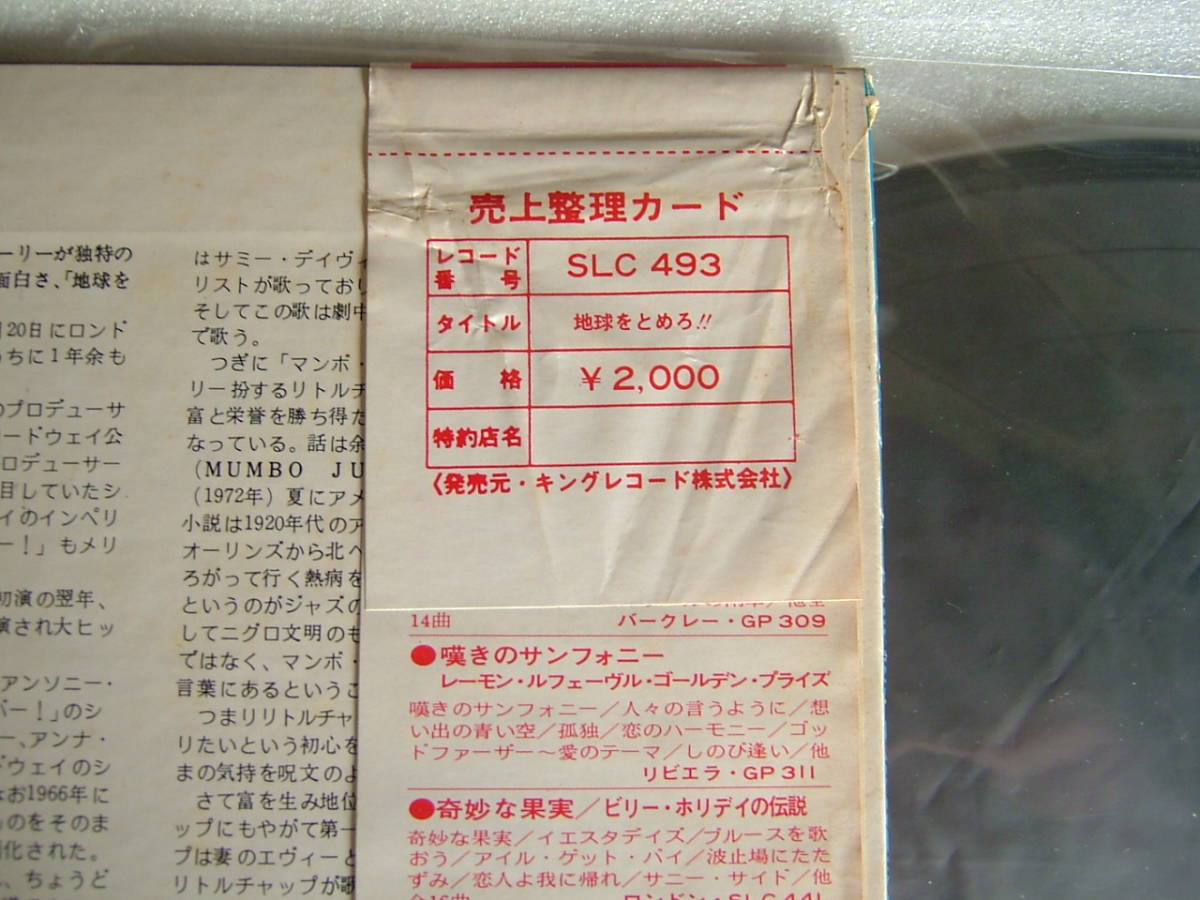 ーリーが独特の
面白さ、「地球を
月20日にロンド
うちに1年余も
のプロデューサ
ードウェイ公
ロデューサー
目していたシ
イのインペリ
ー！」もメリ
初演の翌年、
演され大ヒッ
アンソニー・
バー！」のシ
ー、アンナ・
ドウェイのシ
なお1966年に
ものをそのま
画化された。
ちょうど
はサミー・デイヴィ
リストが歌っており
そしてこの歌は劇中
で歌う。
つぎに「マンボ・
リー扮するリトルチ
富と栄誉を勝ち得た
なっている。話は余
(MUMBO JU
(1972年) 夏にアメ
小説は1920年代のア
オーリンズから北へ
ろがって行く熱病を
というのがジャズの
してニグロ文明のも
ではなく、マンボ・
言葉にあるというこ
つまりリトルチャッ
りたいという初心を
まの気持を呪文のよ
さて富を生み地位
ップにもやがて第一
プは妻のエヴィーと
リトルチャップが歌
売上整理カード
レコード番号 SLC 493
タイトル 地球をとめろ!!
価格 ¥2,000
特約店名
〈発売元・キングレコード株式会社〉
14曲 バークレー・GP 309
●嘆きのサンフォニー
レーモン・ルフェーヴル・ゴールデン・プライズ
嘆きのサンフォニー／人々の言うように／想
い出の青い空／孤独／恋のハーモニー／ゴッ
ドファーザー～愛のテーマ／しのび逢い／他
リビエラ・GP 311
●奇妙な果実／ビリー・ホリディの伝説
奇妙な果実／イエスタデイズ／ブルースを歌
おう／アイル・ゲット・バイ／波止場にたた
ずみ／恋人よ我に帰れ／サニー・サイド／他
全16曲 ロンドン・SLC 441